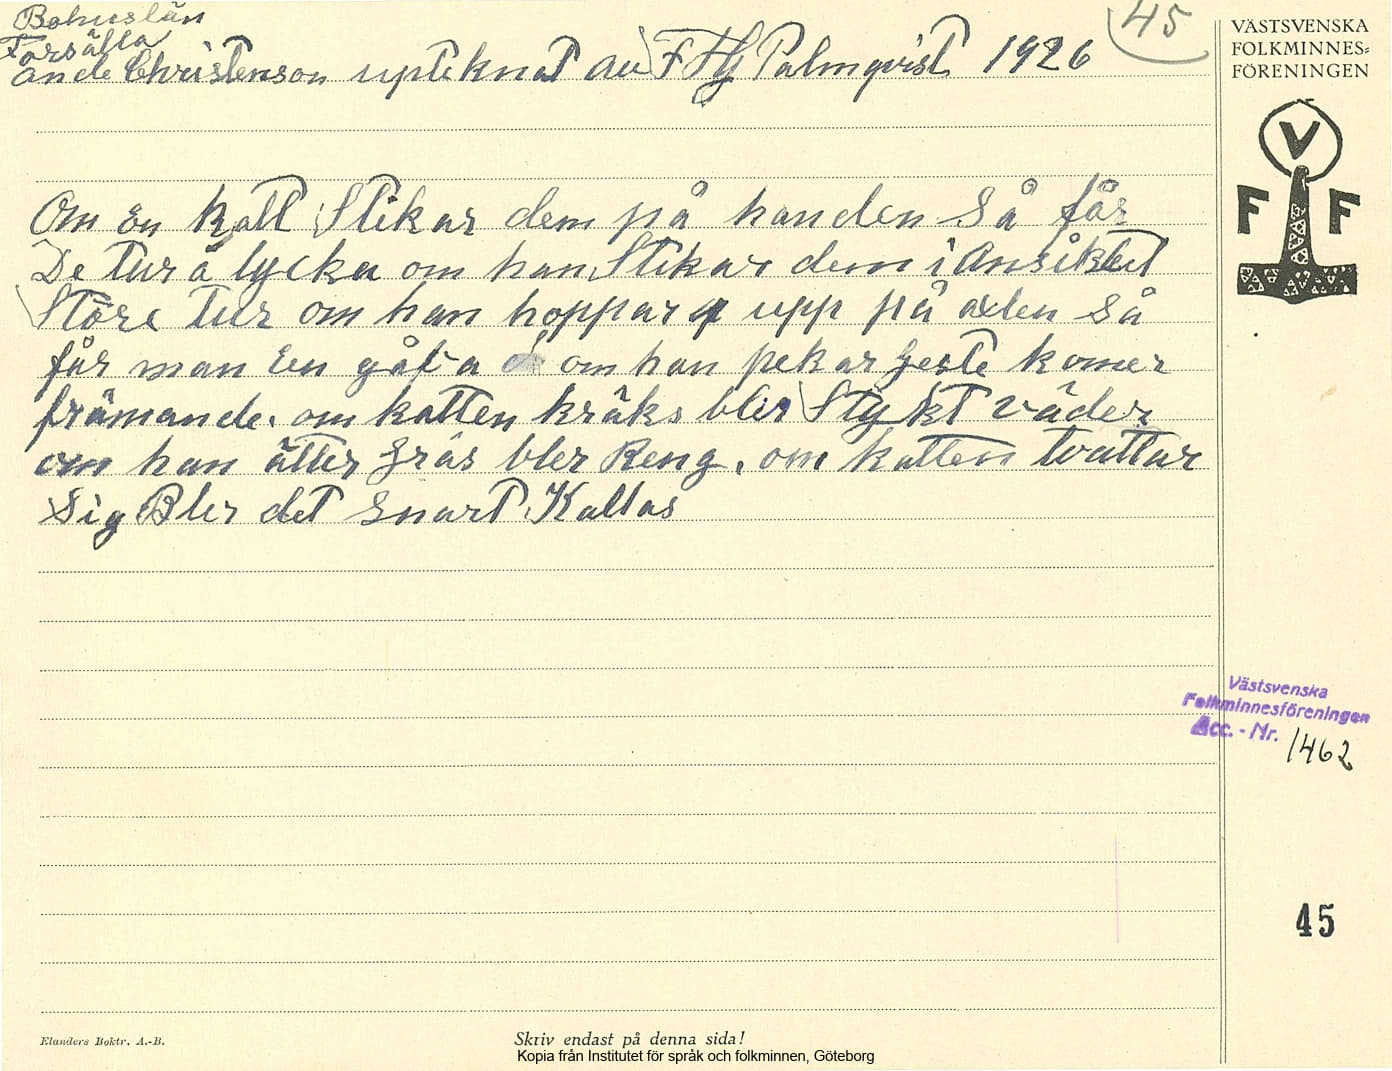 Bohuslän
Forsälla
ande Christenson upteknat av F H G Palmqvist 1926
45
Om En katt Slikar dem på handen Så får
De Tur å lycka om han Slikar dem i Ansiktet
Störe Tur om han hoppar upp på axlen Så
får man En gåfva om han pekar Geste komer
främande. om katten kräks blir Stykt väder
om han ätter Gräs bler Reng, om katten tvattar
Sig Bler det Snart Kallas
VÄSTSVENSKA
FOLKMINNES=
FÖRENINGEN
V
F F
Västsvenska
Folkminnesföreningen
Acc. - Nr. 1462
45
Elanders Boktr. A.-B.
Skriv endast på denna sida!
Kopia från Institutet för språk och folkminnen, Göteborg